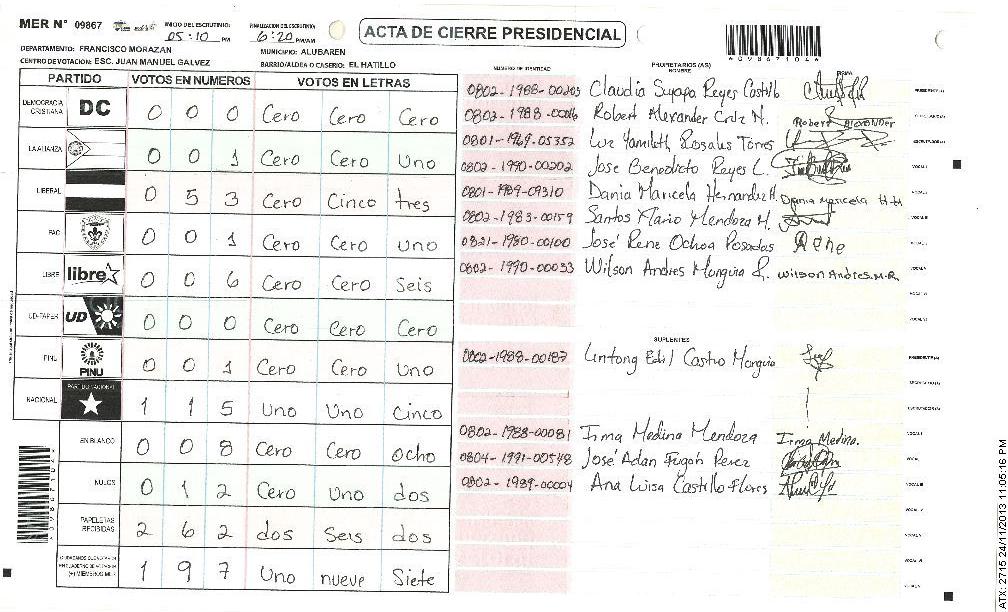 MER N° 09867
INICIO DEL ESCRUTINIO: 05:10 PM
FINALIZACION DEL ESCRUTINIO: 6:20 PM/AM
ACTA DE CIERRE PRESIDENCIAL
DEPARTAMENTO: FRANCISCO MORAZAN
MUNICIPIO: ALUBAREN
CENTRO DE VOTACION: ESC. JUAN MANUEL GALVEZ
BARRIO/ALDEA O CASERIO: EL HATILLO
PARTIDO VOTOS EN NUMEROS VOTOS EN LETRAS
DEMOCRACIA CRISTIANA DC 0 0 0 Cero Cero Cero
LA ALIANZA 0 0 1 Cero Cero Uno
LIBERAL 0 5 3 Cero Cinco tres
PAC 0 0 1 Cero Cero uno
LIBRE libre 0 0 6 Cero Cero Seis
UD-FAPER UD 0 0 0 Cero Cero Cero
PINU PINU 0 0 1 Cero Cero Uno
NACIONAL PARTIDO NACIONAL 1 1 5 Uno Uno Cinco
EN BLANCO 0 0 8 Cero Cero ocho
NULOS 0 1 2 Cero Uno dos
PAPELETAS RECIBIDAS 2 6 2 dos Seis dos
1 9 7 Uno nueve Siete
NUMERO DE IDENTIDAD PROPIETARIOS (AS) NOMBRE FIRMA
0802-1988-00203 Claudia Suyapa Reyes Castillo
0802-1988-00016 Robert Alexander Cruz M. Robert Alexander
0801-1969-05352 Luz Yamileth Rosales Torres
0802-1990-00202 Jose Benedicto Reyes L.
0801-1989-09310 Dania Maricela Hernandez H. Dania Maricela H.H
0802-1983-00159 Santos Mario Mendoza M.
0821-1980-00100 José Rene Ochoa Posadas
0802-1990-00033 Wilson Andres R. Wilson Andres.M.R.
SUPLENTES
0802-1988-00187 Castro
0802-1988-00081 Irma Medina Mendoza Irma Medina.
0804-1991-00548 José Adan Perez
0802-1989-00004 Ana Luisa Castillo Flores
ATX: 2715 24/11/2013 11:05:16 PM